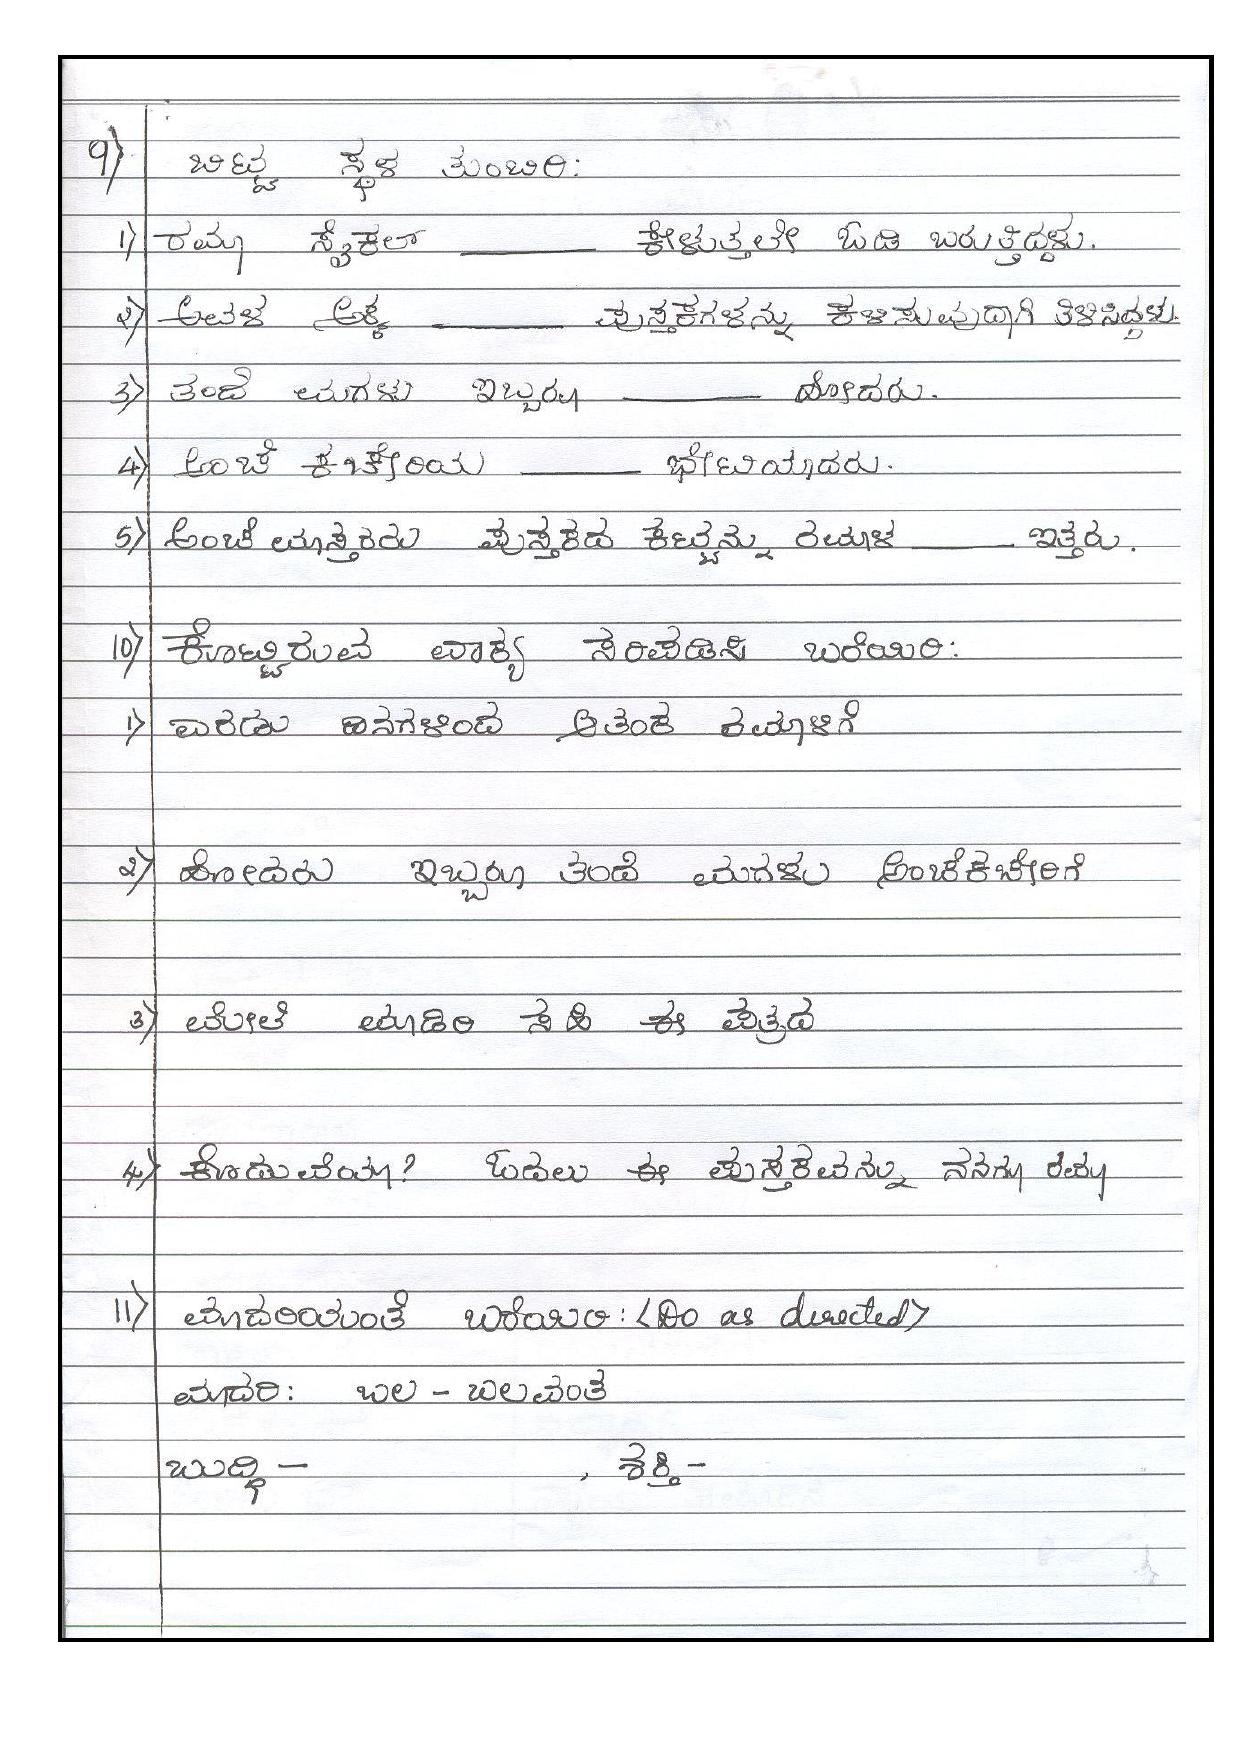 9) ಬಿಟ್ಟ ಸ್ಥಳ ತುಂಬಿರಿ:
1) ರಮಾ ಸೈಕಲ್ ______ ಕೇಳುತ್ತಲೇ ಓಡಿ ಬರುತ್ತಿದ್ದಳು.
೨) ಅವಳ ಅಕ್ಕ ______ ಪುಸ್ತಕಗಳನ್ನು ಕಳಿಸುವುದಾಗಿ ತಿಳಿಸಿದ್ದಳು.
3) ತಂದೆ ಮಗಳು ಇಬ್ಬರೂ ______ ಹೋದರು.
4) ಅಂಚೆ ಕಚೇರಿಯ ______ ಭೇಟಿಯಾದರು.
5) ಅಂಚೆ ಮಾಸ್ತರರು ಪುಸ್ತಕದ ಕಟ್ಟನ್ನು ರಮಾಳ ______ ಇತ್ತರು.
10) ಕೊಟ್ಟಿರುವ ವಾಕ್ಯ ಸರಿಪಡಿಸಿ ಬರೆಯಿರಿ:
1) ಎರಡು ದಿನಗಳಿಂದ ಆತಂಕ ರಮಾಳಿಗೆ
೨) ಹೋದರು ಇಬ್ಬರೂ ತಂದೆ ಮಗಳು ಅಂಚೆಕಚೇರಿಗೆ
3) ಮೇಲೆ ಮಾಡಿರಿ ಸಹಿ ಈ ಪತ್ರದ
4) ಕೊಡುವೆಯಾ? ಓದಲು ಈ ಪುಸ್ತಕವನ್ನು ನನಗೂ ರಮಾ
11) ಮಾದರಿಯಂತೆ ಬರೆಯಿರಿ: (Do as directed)
ಮಾದರಿ: ಬಲ - ಬಲವಂತ
ಬುದ್ಧಿ - , ಶಕ್ತಿ -